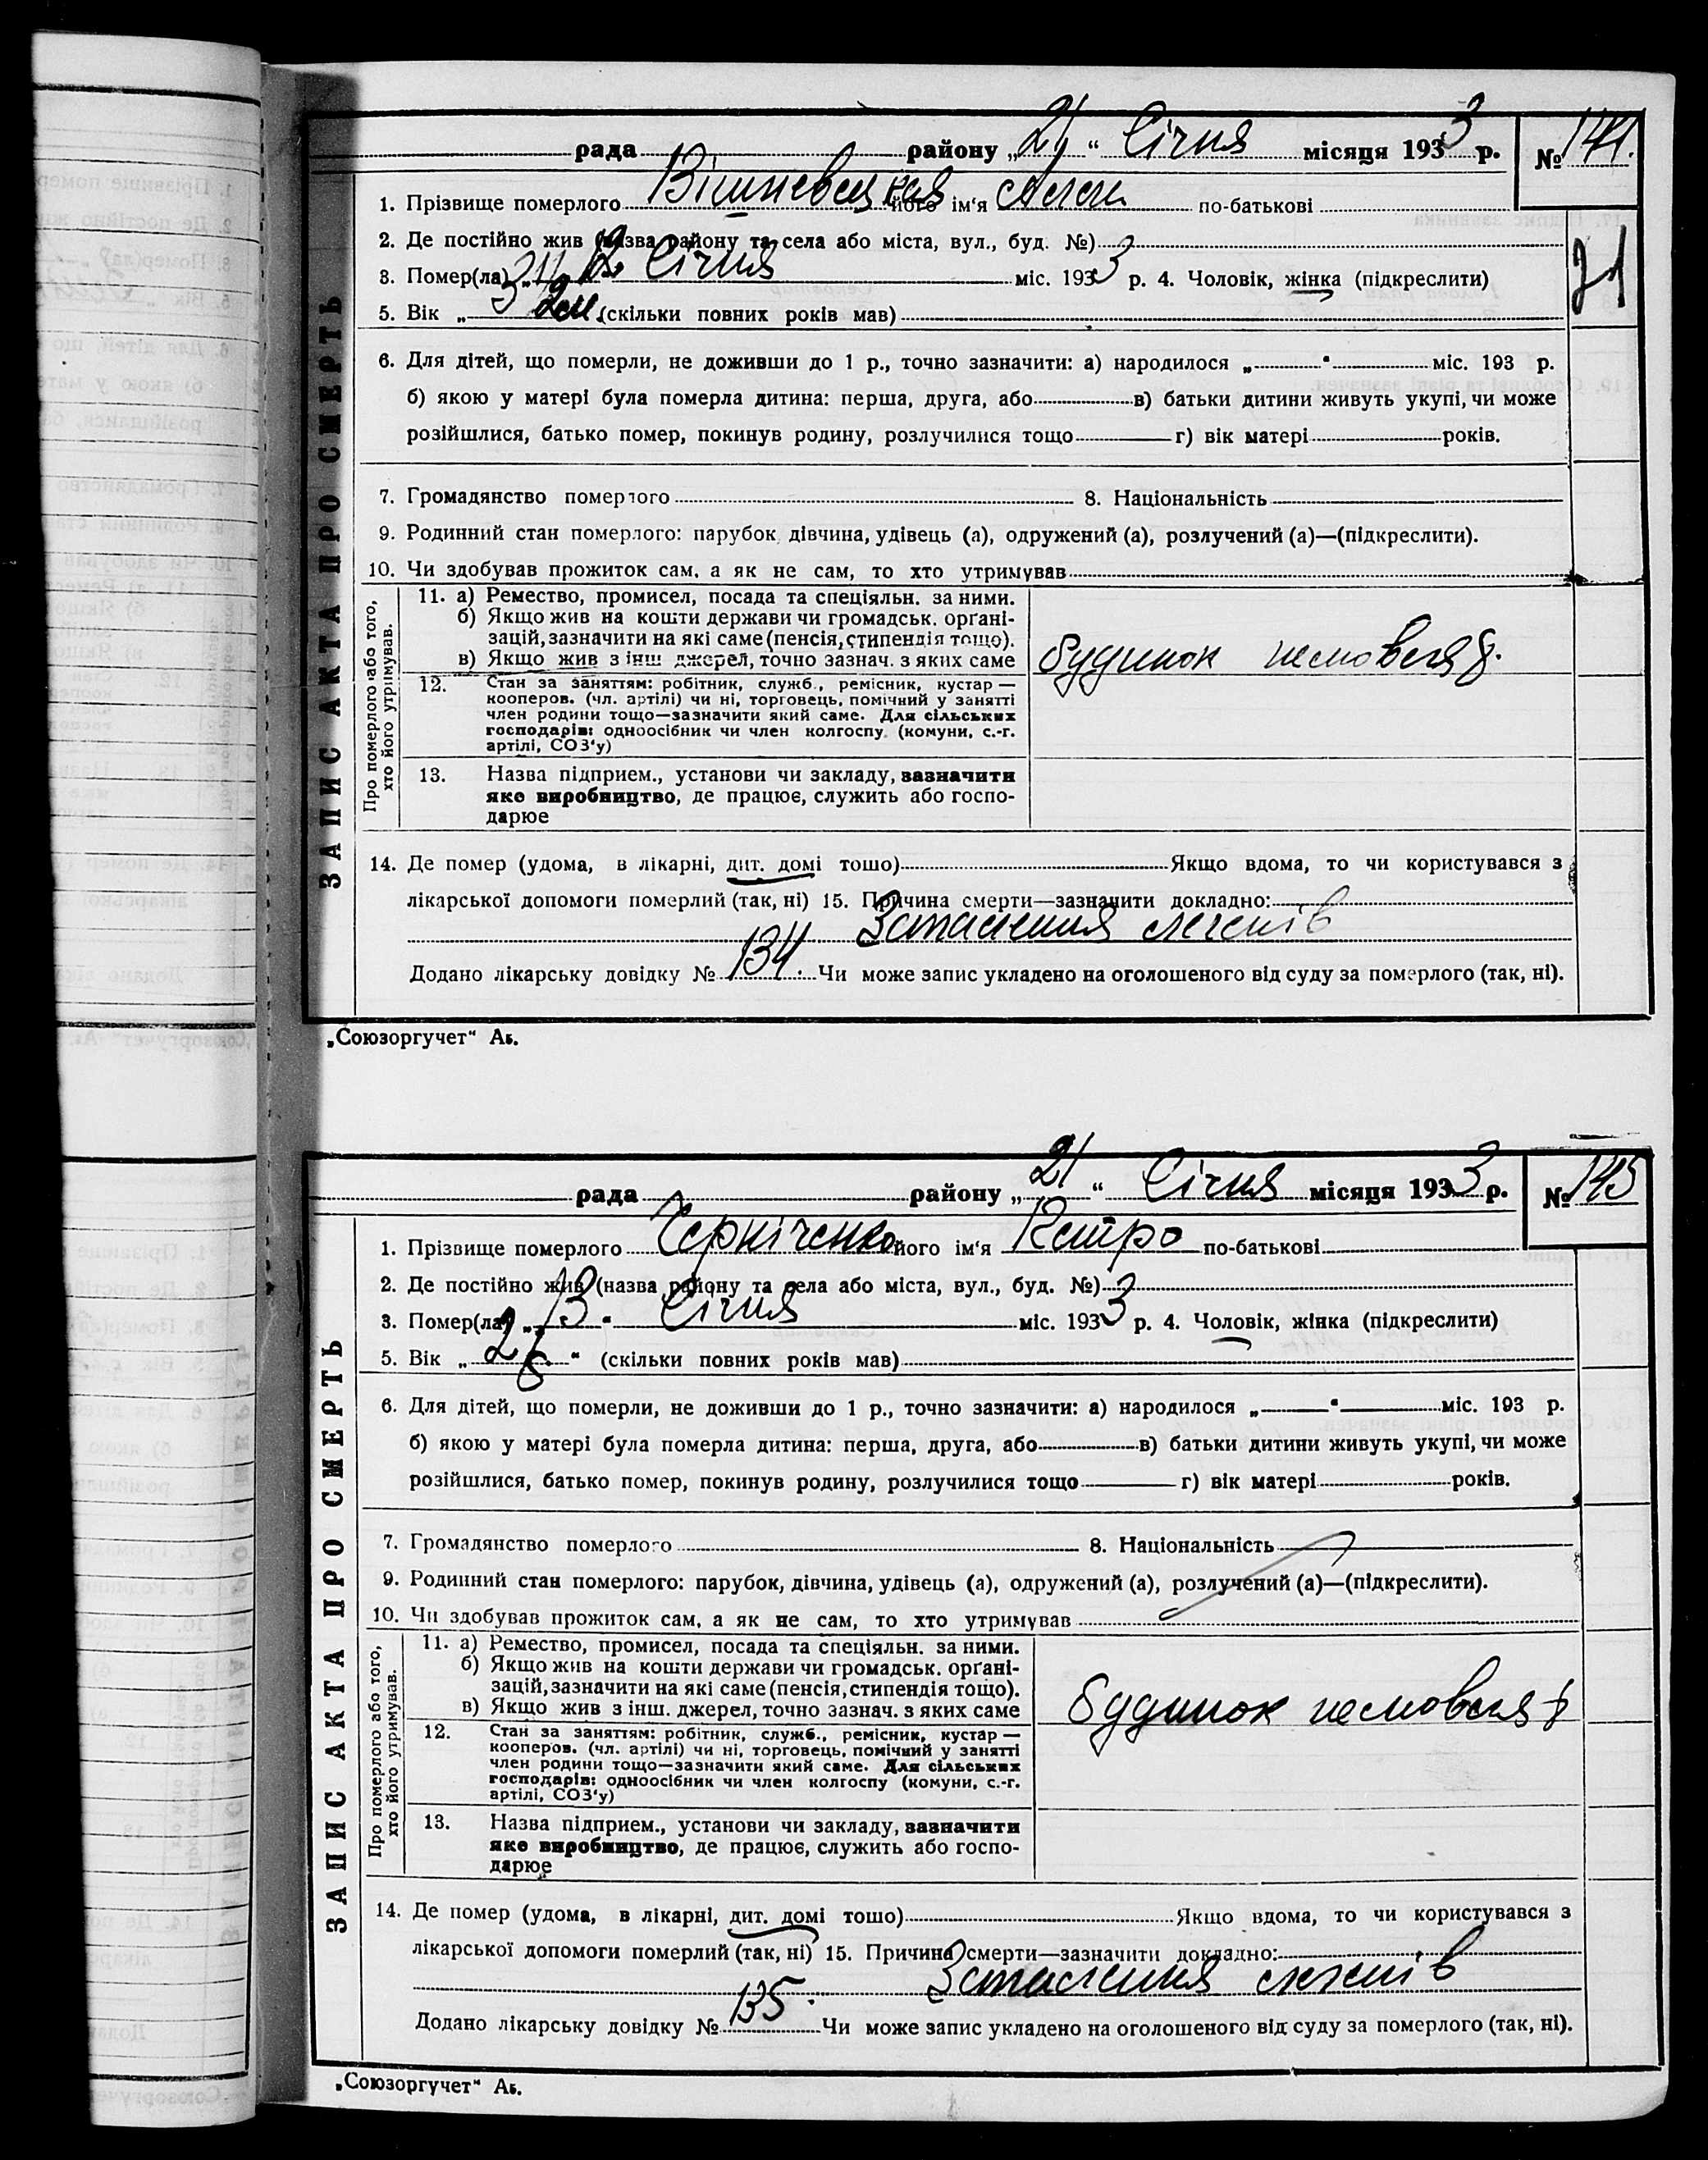 рада району „21“ Січня місяця 1933 р. № 144.
1. Прізвище померлого Вішневецкая його ім‘я по-батькові
2. Де постійно жив (назва району та села або міста, вул., буд. №)
3. Помер(ла) „12“ Січня міс. 1933 р. 4. Чоловік, жінка (підкреслити)
21
5. Вік „ 2м. (скільки повних років мав)
6. Для дітей, що померли, не доживши до 1 р., точно зазначити: а) народилося „ “ міс. 193 р.
б) якою у матері була померла дитина: перша, друга, або в) батьки дитини живуть укупі, чи може
розійшлися, батько помер, покинув родину, розлучилися тощо г) вік матері років.
7. Громадянство померлого 8. Національність
9. Родинний стан померлого: парубок, дівчина, удівець (а), одружений (а), розлучений (а)—(підкреслити).
10. Чи здобував прожиток сам, а як не сам, то хто утримував
ЗАПИС АКТА ПРО СМЕРТЬ
Про померлого або того, хто його утримував.
11. а) Ремество, промисел, посада та спеціяльн. за ними.
б) Якщо жив на кошти держави чи громадськ. орґані-
зацій, зазначити на які саме (пенсія, стипендія тощо).
в) Якщо жив з інш джерел, точно зазнач. з яких саме
будинок немовеля
12. Стан за заняттям: робітник, служб., ремісник, кустар —
кооперов. (чл. артілі) чи ні, торговець, помічний у занятті
член родини тощо—зазначити який саме. Для сільських
господарів: одноосібник чи член колгоспу (комуни, с.-г.
артілі, СОЗ‘у)
13. Назва підприєм., установи чи закладу, зазначити
яке виробництво, де працює, служить або госпо-
дарює
14. Де помер (удома, в лікарні, дит. домі тощо) Якщо вдома, то чи користувався з
лікарської допомоги померлий (так, ні) 15. Причина смерти—зазначити докладно:
Запалення легенів
Додано лікарську довідку № 134. Чи може запис укладено на оголошеного від суду за померлого (так, ні).
„Союзоргучет“ Аб.
рада району „21“ Січня місяця 1933 р. № 145
1. Прізвище померлого Черніченко його ім‘я Петро по-батькові
2. Де постійно жив (назва району та села або міста, вул., буд. №)
3. Помер(ла) „13“ Січня міс. 1933 р. 4. Чоловік, жінка (підкреслити)
5. Вік „ “ (скільки повних років мав)
6. Для дітей, що померли, не доживши до 1 р., точно зазначити: а) народилося „ “ міс. 193 р.
б) якою у матері була померла дитина: перша, друга, або в) батьки дитини живуть укупі, чи може
розійшлися, батько помер, покинув родину, розлучилися тощо г) вік матері років.
7. Громадянство померлого 8. Національність
9. Родинний стан померлого: парубок, дівчина, удівець (а), одружений (а), розлучений (а)—(підкреслити).
10. Чи здобував прожиток сам, а як не сам, то хто утримував
ЗАПИС АКТА ПРО СМЕРТЬ
Про померлого або того, хто його утримував.
11. а) Ремество, промисел, посада та спеціяльн. за ними.
б) Якщо жив на кошти держави чи громадськ. орґані-
зацій, зазначити на які саме (пенсія, стипендія тощо).
в) Якщо жив з інш. джерел, точно зазнач. з яких саме
будинок немовеля
12. Стан за заняттям: робітник, служб., ремісник, кустар —
кооперов. (чл. артілі) чи ні, торговець, помічний у занятті
член родини тощо—зазначити який саме. Для сільських
господарів: одноосібник чи член колгоспу (комуни, с.-г.
артілі, СОЗ‘у)
13. Назва підприєм., установи чи закладу, зазначити
яке виробництво, де працює, служить або госпо-
дарює
14. Де помер (удома, в лікарні, дит. домі тощо) Якщо вдома, то чи користувався з
лікарської допомоги померлий (так, ні) 15. Причина смерти—зазначити докладно:
Запалення легенів
Додано лікарську довідку № 135. Чи може запис укладено на оголошеного від суду за померлого (так, ні).
„Союзоргучет“ Аб.